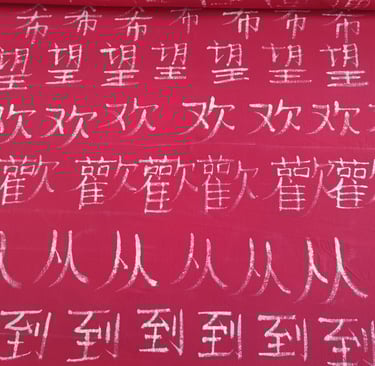 希希希希希希
望望望望望望望
欢欢欢欢欢欢
歡歡歡歡歡歡
从从从从从
到到到到到到